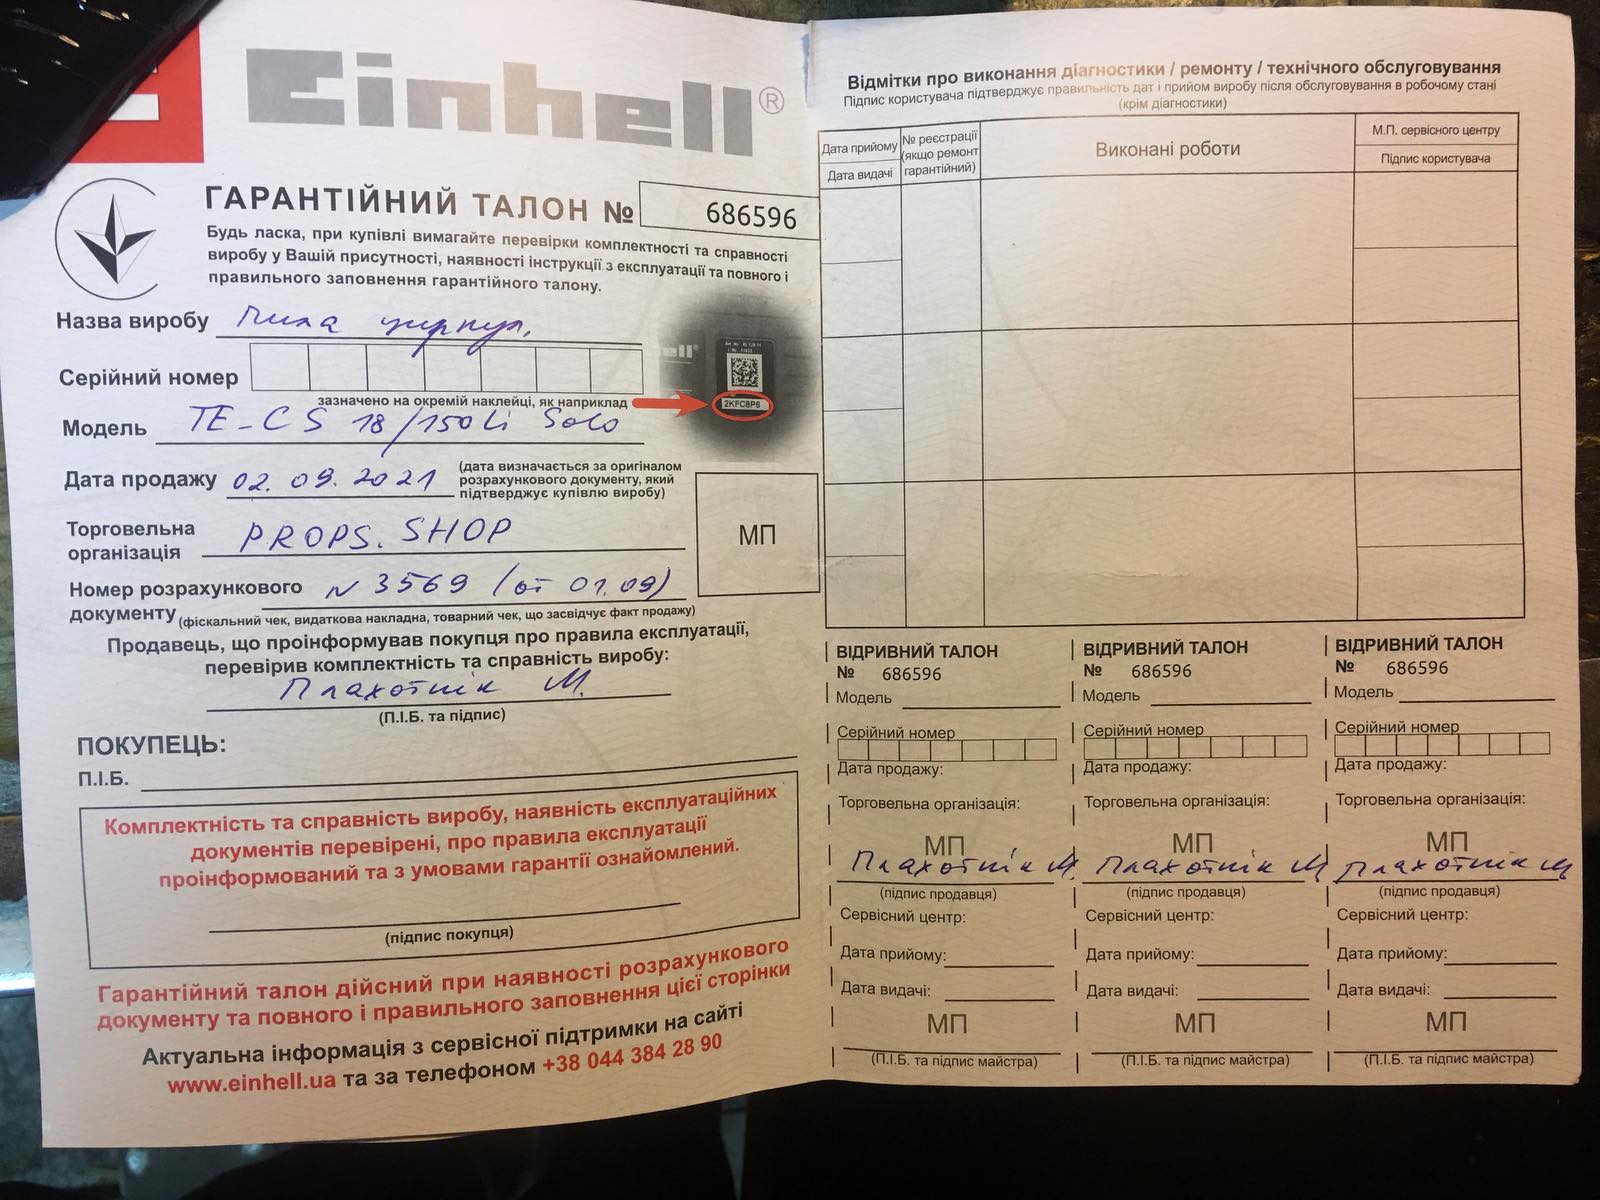 Einhell®
ГАРАНТІЙНИЙ ТАЛОН № 686596
Будь ласка, при купівлі вимагайте перевірки комплектності та справності
виробу у Вашій присутності, наявності інструкції з експлуатації та повного і
правильного заповнення гарантійного талону.
Назва виробу Пила циркул.
Серійний номер
зазначено на окремій наклейці, як наприклад
2KFC8P6
Модель TE-CS 18/150Li Solo
Дата продажу 02.09.2021 (дата визначається за оригіналом
розрахункового документу, який
підтверджує купівлю виробу)
Торговельна
організація PROPS.SHOP
МП
Номер розрахункового
документу N 3569 (от 01.09)
(фіскальний чек, видаткова накладна, товарний чек, що засвідчує факт продажу)
Продавець, що проінформував покупця про правила експлуатації,
перевірив комплектність та справність виробу:
Плахотнік М.
(П.І.Б. та підпис)
ПОКУПЕЦЬ:
П.І.Б.
Комплектність та справність виробу, наявність експлуатаційних
документів перевірені, про правила експлуатації
проінформований та з умовами гарантії ознайомлений.
(підпис покупця)
Гарантійний талон дійсний при наявності розрахункового
документу та повного і правильного заповнення цієї сторінки
Актуальна інформація з сервісної підтримки на сайті
www.einhell.ua та за телефоном +38 044 384 28 90
Відмітки про виконання діагностики / ремонту / технічного обслуговування
Підпис користувача підтверджує правильність дат і прийом виробу після обслуговування в робочому стані
(крім діагностики)
Дата прийому
Дата видачі
№ реєстрації
(якщо ремонт
гарантійний)
Виконані роботи
М.П. сервісного центру
Підпис користувача
ВІДРИВНИЙ ТАЛОН
№ 686596
Модель
Серійний номер
Дата продажу:
Торговельна організація:
МП
Плахотнік М.
(підпис продавця)
Сервісний центр:
Дата прийому:
Дата видачі:
МП
(П.І.Б. та підпис майстра)
ВІДРИВНИЙ ТАЛОН
№ 686596
Модель
Серійний номер
Дата продажу:
Торговельна організація:
МП
Плахотнік М
(підпис продавця)
Сервісний центр:
Дата прийому:
Дата видачі:
МП
(П.І.Б. та підпис майстра)
ВІДРИВНИЙ ТАЛОН
№ 686596
Модель
Серійний номер
Дата продажу:
Торговельна організація:
МП
Плахотнік М
(підпис продавця)
Сервісний центр:
Дата прийому:
Дата видачі:
МП
(П.І.Б. та підпис майстра)